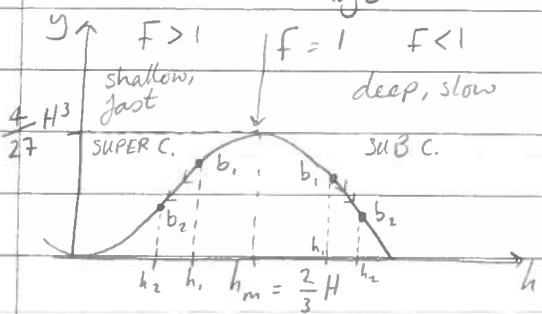 y F > 1 F = 1 F < 1
shallow, fast deep, slow
4/27 H³ SUPER C. SUB C.
b₁ b₁
b₂ b₂
h₂ h₁ hₘ = 2/3 H h₁ h₂ h